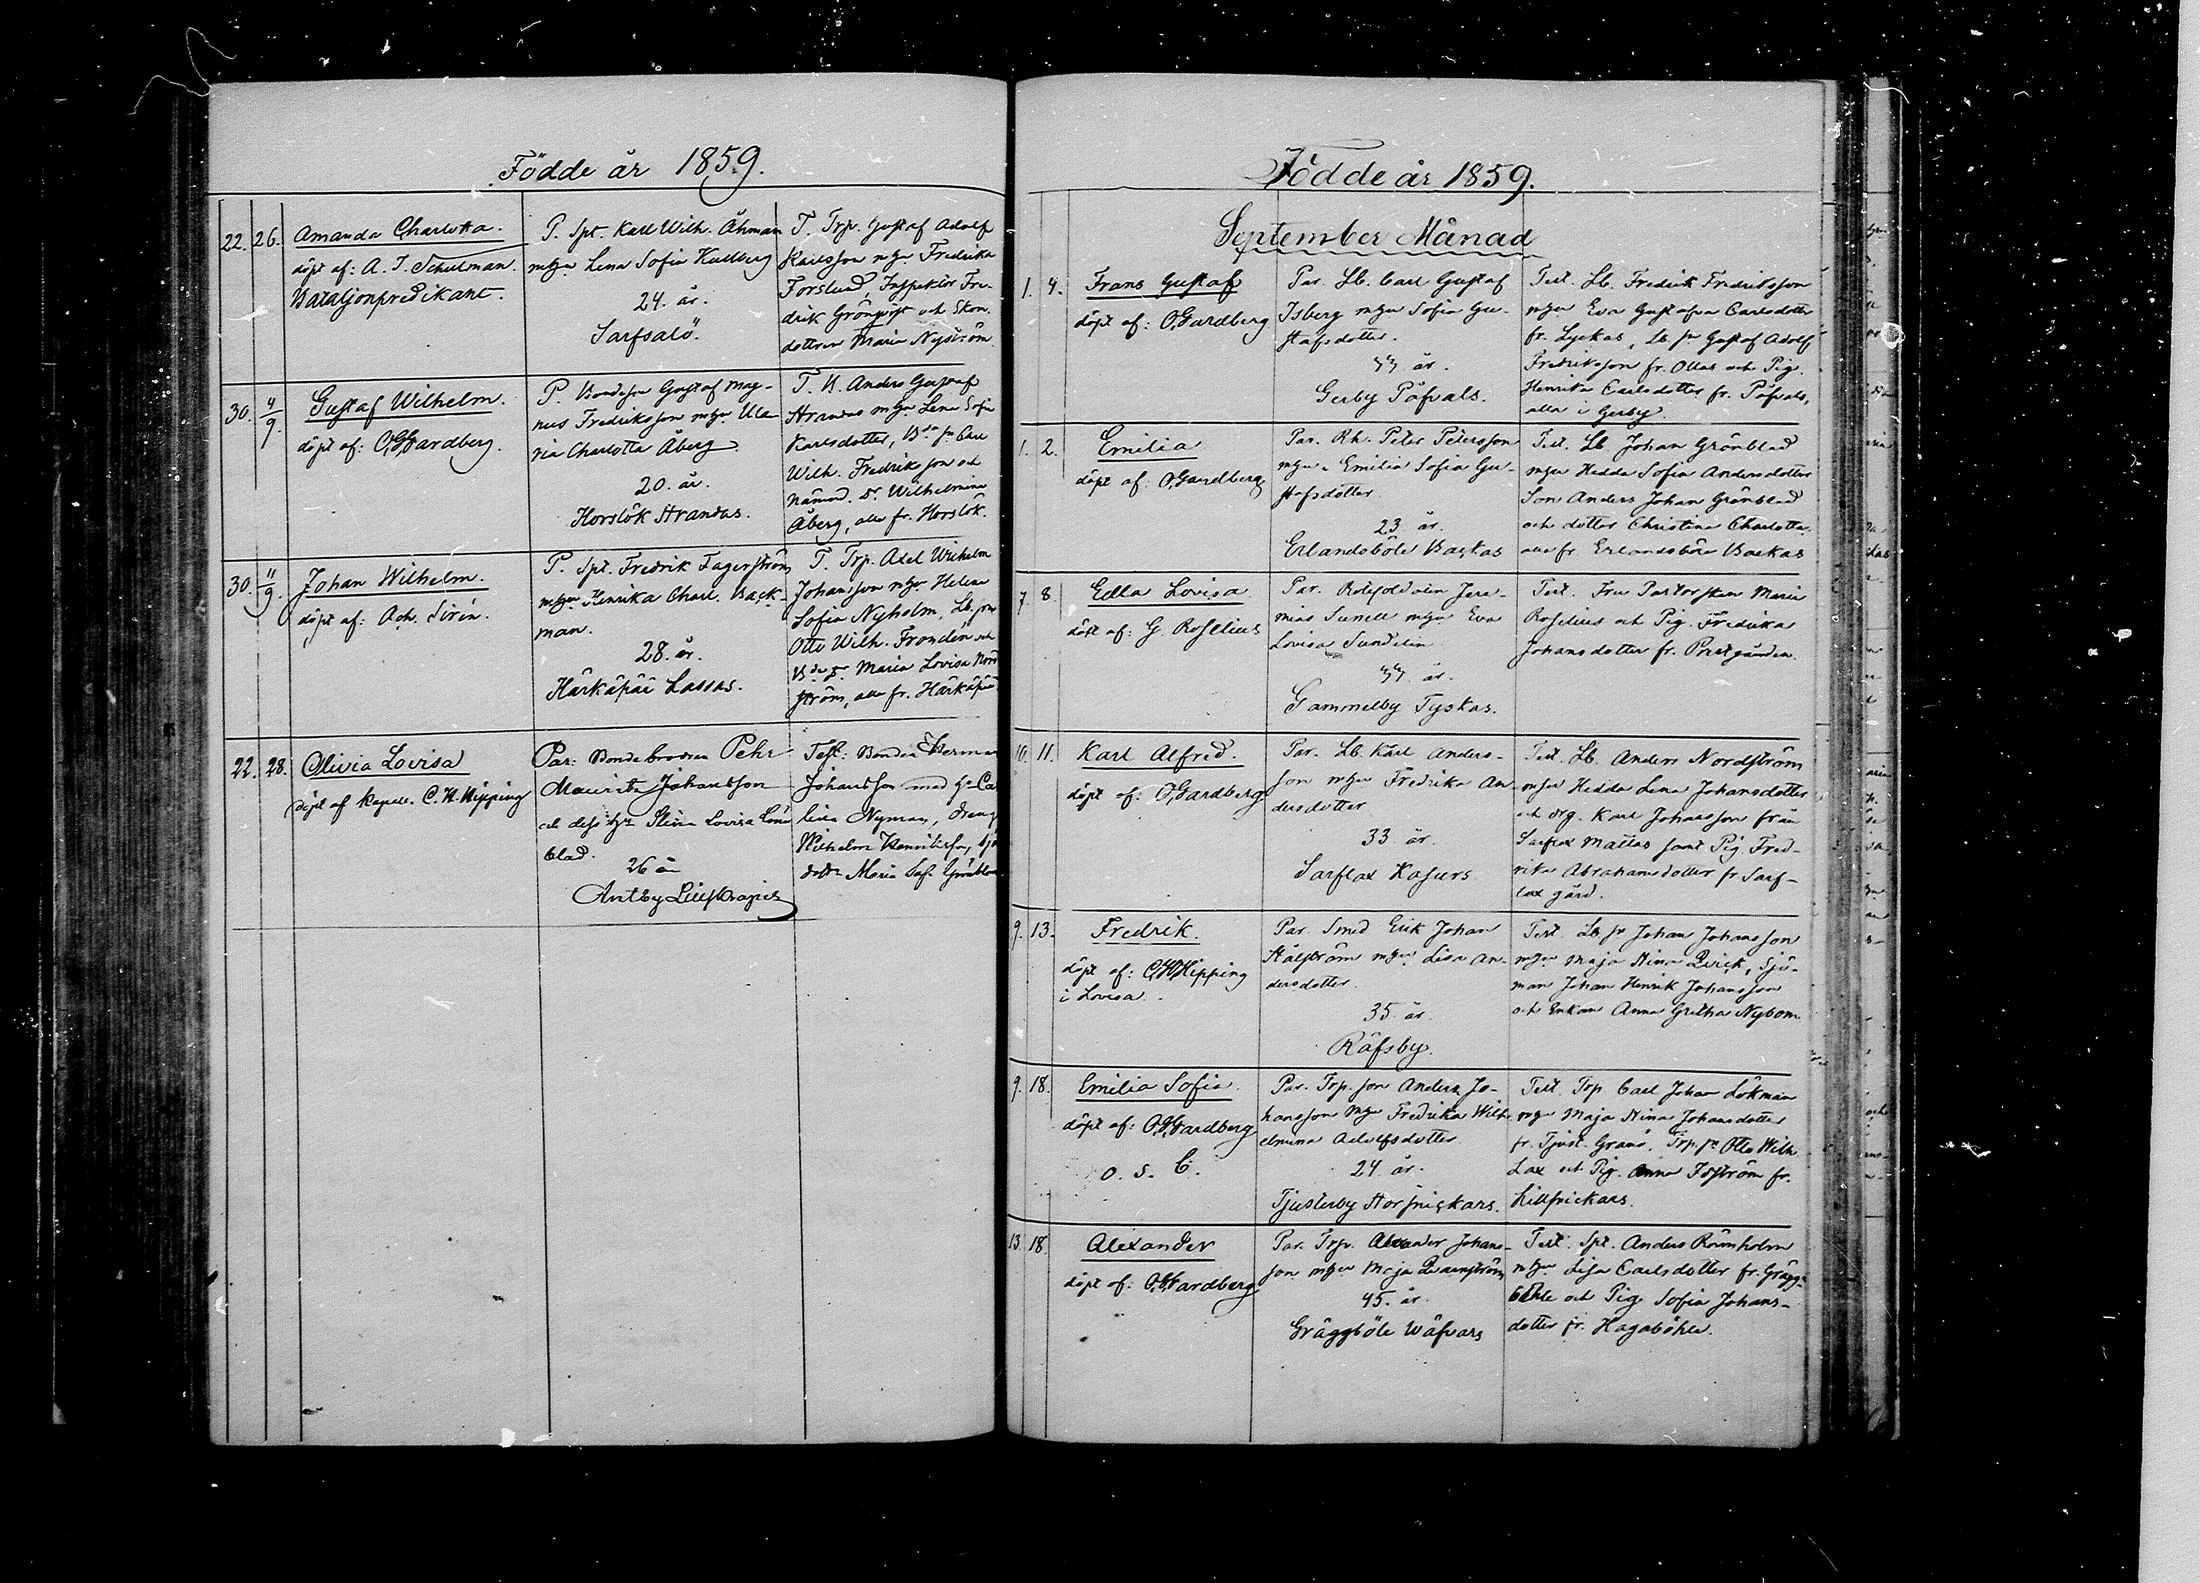 Födde år 1859.
22. 26. Amanda Charlotta.
döpt af: A. J. Schulman.
Bataljonpredikant.
P. Spt. Karl Wilh. Åhman
mhu Lena Sofia Kullberg
24. år.
Sarfsalö.
T. Trp. Gustaf Adolf
Karlsson mhu Fredrika
Forslund, Inspektor Fre-
drik Grönqvist och Skom.
dottren Maria Nyström
30. 4/9. Gustaf Wilhelm.
döpt af: O. Gardberg.
P. Bondeson Gustaf Mag-
nus Fredriksson mhu Ula
ria Charlotta Åberg
20. år.
Horslök Strandas.
T. B. Anders Gustaf
Strandas mhu Lena Sofia
Karlsdotter, Bde sn Carl
Wilh. Fredriksson och
Nämnd. dr. Wilhelmina
Åberg, alla fr. Horslök.
30. 11/9. Johan Wilhelm.
döpt af: Ad. Sirén.
P. Spt. Fredrik Fagerström
mhu Henrika Charl. Back-
man.
28. år.
Härkäpää Lassas.
T. Trp. Axel Wilhelm
Johansson mhu Helena
Sofia Nyholm, Lb. son
Otto Wilh. Frondén och
Bde dr. Maria Lovisa Nord
ström, alla fr. Härkäpää
22. 28. Olivia Lovisa
döpt af Kapell. C. H. Hipping
Par: Bondebrodren Pehr
Mauritz Johansson
och dess hu Lovisa Lönn
blad.
26 år
Antby
Test: Bonden Herman
Johansson med hu Ca
lina Nyman, dreng
Wilhelm
dotter Maria Sof. Grönblad
Födde år 1859.
September Månad
1. 4. Frans Gustaf
döpt af: O. Gardberg
Par. Lb. Carl Gustaf
Isberg mhu Sofia Gu-
stafsdotter.
44 år.
Gerby Påfvals.
Test. Lb. Fredrik Fredriksson
mhu Eva Gustafva Carlsdotter
fr. Lyckas, Lb. sn Gustaf Adolf
Fredriksson fr. Ollas och Pig.
Henrika Carlsdotter fr. Påfvals,
alla i Gerby.
1. 2. Emilia
döpt af: O. Gardberg
Par. Rh. Peter Petersson
mhu Emilia Sofia Gu-
stafsdotter
23 år.
Erlandsböle Backas
Test. Lb Johan Grönblad
mhu Hedda Sofia Andersdotter
Son Anders Johan Grönblad
och dotter Christina Charlotta
alla fr. Erlandsböle Backas
7. 8. Edla Lovisa
döpt af: G. Roselius
Par. Rotesoldaten Jere-
mias Sunell mhu Eva
Lovisa Sundelin
44. år.
Gammelby Tyskas.
Test. Fru Pastorskan Maria
Roselius och Pig. Fredrika
Johansdotter fr. Prestgården.
10. 11. Karl Alfred.
döpt af: O. Gardberg
Par. Lb. Karl Anders-
son mhu Fredrika An
dersdotter
33 år.
Sarflax Kasurs
Test. Lb. Anders Nordström
mhu Hedda Lena Johansdotter
och drg. Karl Johansson från
Sarflax Mattas samt Pig. Fred-
rika Abrahamsdotter fr Sarf-
lax gård.
9. 13. Fredrik.
döpt af: C. H. Hipping
i Lovisa.
Par. Smed Erik Johan
Stålström mhu Lisa An-
dersdotter
35. år.
Räfsby.
Test. Lb sn Johan Johansson
mhu Maja Stina Qvick, Sjö-
man Johan Henrik Johansson
och Enkan Anna Gretha Nybom
9. 18. Emilia Sofia.
döpt af: O. Gardberg
o. s. C.
Par. Trp. son Anders Jo-
hansson mhu Fredrika Wilh
elmina Adolfsdotter
24 år.
Tjusterby Storsnickars.
Test Trp Carl Johan Lökman
mhu Maja Stina Johansdotter
fr. Tjust. Granö. Trp. sn Otto Wilh
Lax och Pig. Anna Idström fr.
Lillsnickars.
13. 18. Alexander
döpt af: O. Gardberg
Par Trp. Alexander Johans-
son mhu Maja Qvarnström
45. år.
Gräggböle Wäfvars
Test. Spt. Anders Römholm
mhu Lisa Carlsdotter fr. Grägg-
böhle och Pig Sofia Johans-
dotter fr. Hagaböhle.